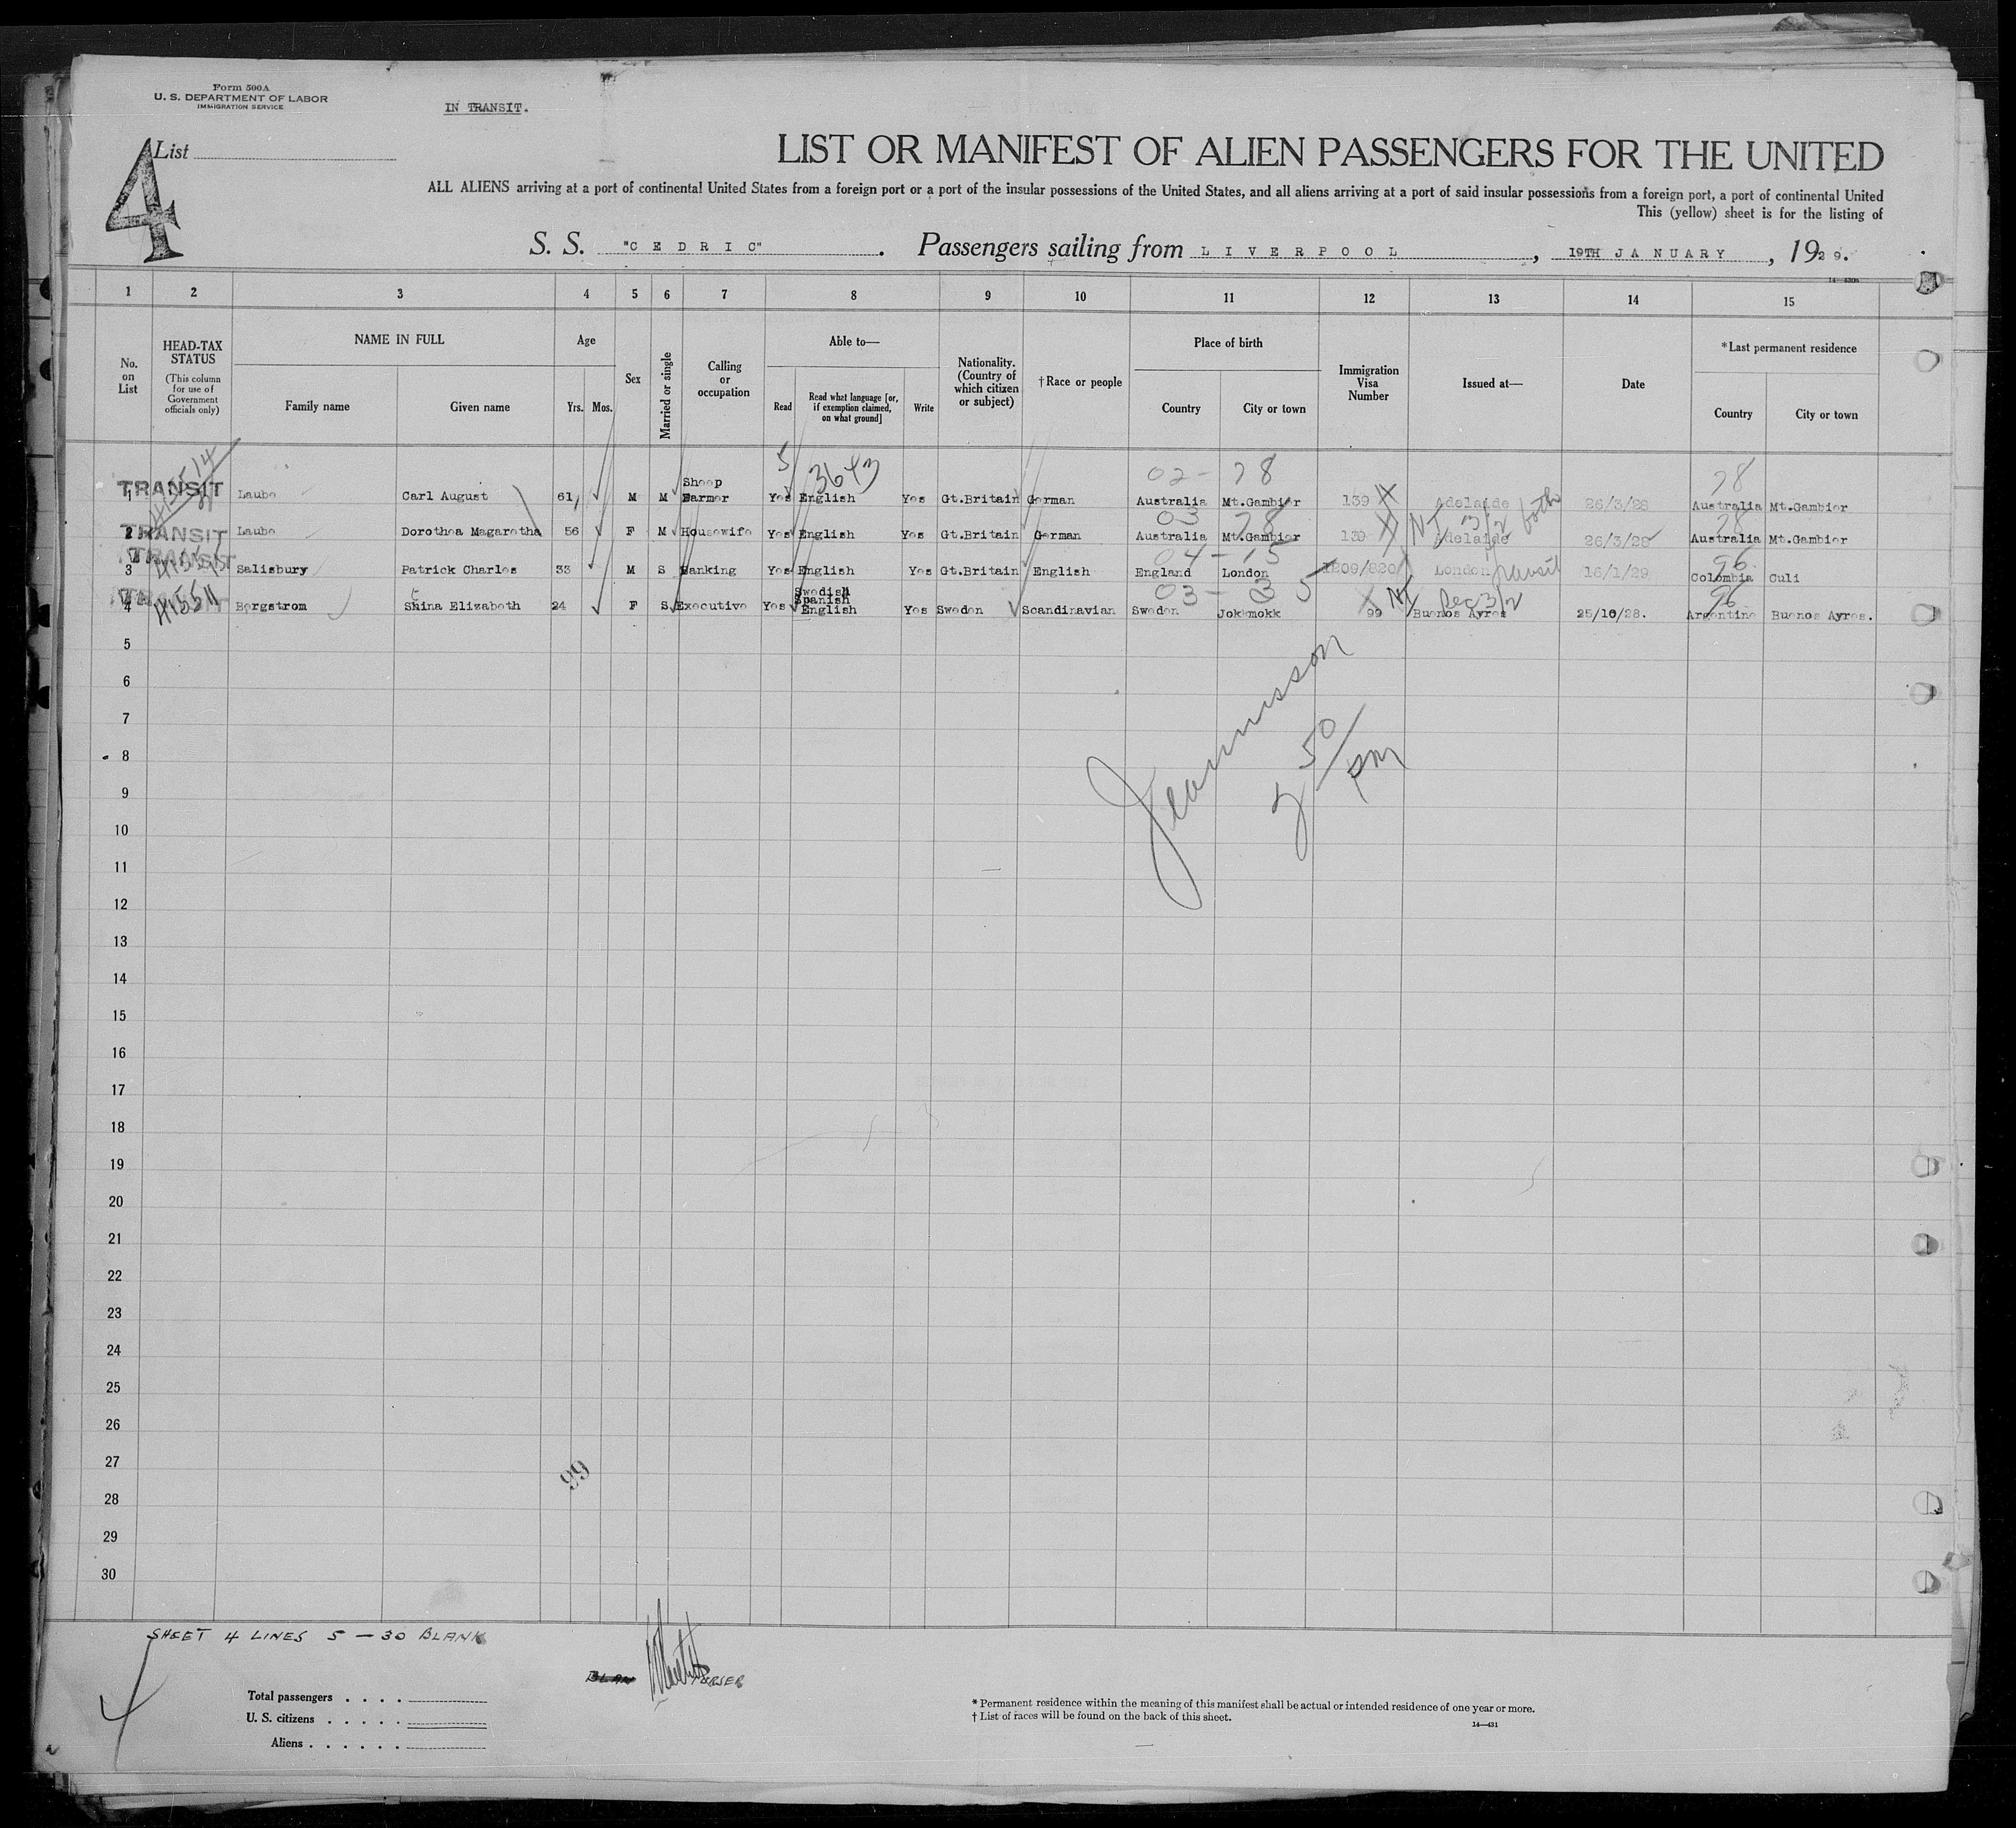 Form 500A
U. S. DEPARTMENT OF LABOR
IMMIGRATION SERVICE
IN TRANSIT.
4
List
LIST OR MANIFEST OF ALIEN PASSENGERS FOR THE UNITED
ALL ALIENS arriving at a port of continental United States from a foreign port or a port of the insular possessions of the United States, and all aliens arriving at a port of said insular possessions from a foreign port, a port of continental United
This (yellow) sheet is for the listing of
S. S. "CEDRIC". Passengers sailing from LIVERPOOL, 19TH JANUARY, 1929.
1 2 3 4 5 6 7 8 9 10 11 12 13 14 15
No. on List
HEAD-TAX STATUS (This column for use of Government officials only)
NAME IN FULL
Family name Given name
Age
Yrs. Mos.
Sex
Married or single
Calling or occupation
Able to—
Read
Read what language [or, if exemption claimed, on what ground]
Write
Nationality. (Country of which citizen or subject)
†Race or people
Place of birth
Country City or town
Immigration Visa Number
Issued at—
Date
*Last permanent residence
Country City or town
5 3643 02- 78 78
TRANSIT 1 Laube Carl August 61 M M Sheep Farmer Yes English Yes Gt.Britain German Australia Mt.Gambier 139 Adelaide 26/3/28 Australia Mt.Gambier
03 78 NJ 3/2 both 78
TRANSIT 2 Laube Dorothea Magaretha 56 F M Housewife Yes English Yes Gt.Britain German Australia Mt.Gambier 139 Adelaide 26/3/28 Australia Mt.Gambier
04-15 transit 96
TRANSIT 3 Salisbury Patrick Charles 33 M S Banking Yes English Yes Gt.Britain English England London 1209/820 London 16/1/29 Colombia Culi
03- 35 96
TRANSIT 4 Bergstrom Shina Elizabeth 24 F S Executive Yes Swedish Spanish English Yes Sweden Scandinavian Sweden Jokkmokk 99 Buenos Ayres 25/10/28. Argentine Buenos Ayres.
5
6
7
8
9
10
11
12
13
14
15
16
17
18
19
20
21
22
23
24
25
26
27
28
29
30
50
pm
99
SHEET 4 LINES 5 — 30 BLANK
PURSER
Total passengers
U. S. citizens
Aliens
* Permanent residence within the meaning of this manifest shall be actual or intended residence of one year or more.
† List of races will be found on the back of this sheet.
14—431